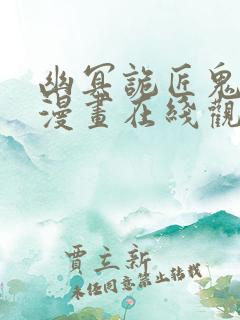 幽冥詭匠鬼
漫畫在綫觀
賈立新
未經同意禁止轉載